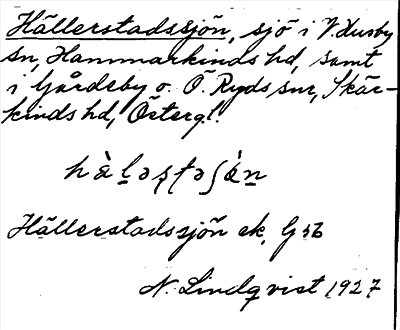 Hällerstadssjön, sjö i V. Husby
sn, Hammarkinds hd, samt
i Gårdeby o. Ö. Ryds snr, Skär-
kinds hd, Östergl.
Hällerstadssjön ek, G 56
N. Lindqvist 1927